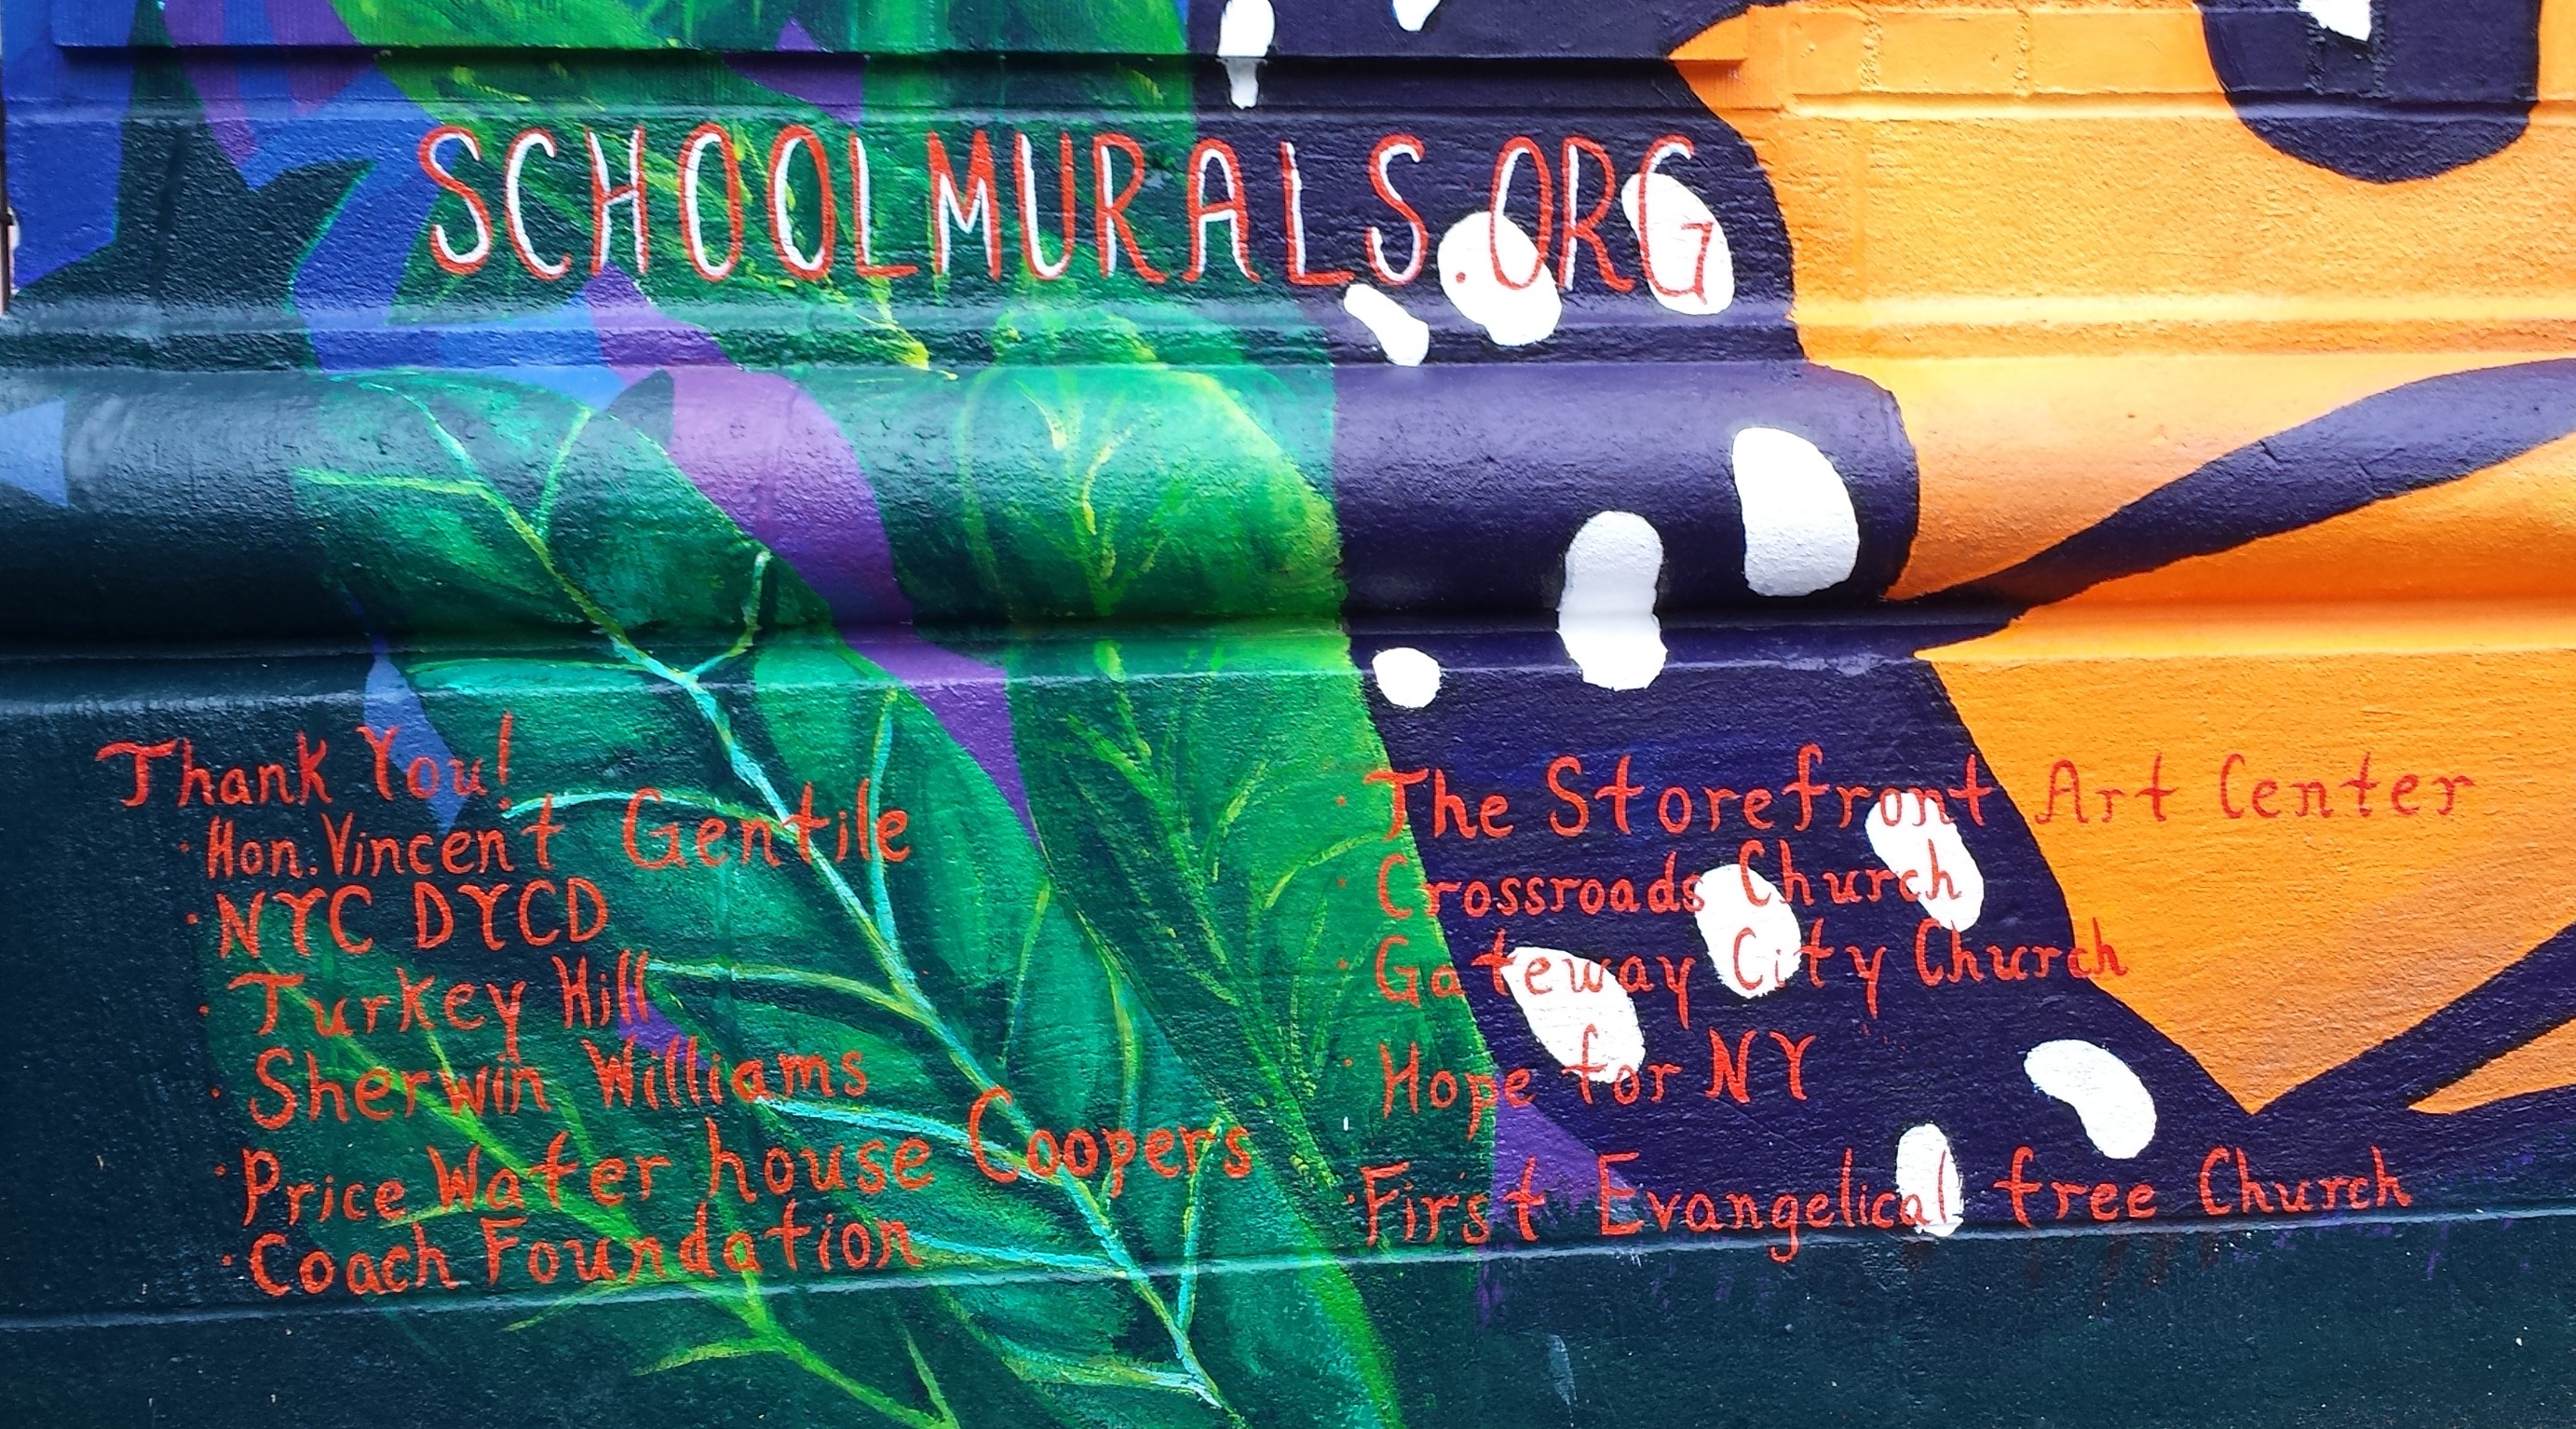 SCHOOLMURALS.ORG
Thank You!
· Hon. Vincent Gentile
· NYC DYCD
· Turkey Hill
· Sherwin Williams
· Price Water house Coopers
· Coach Foundation
· The Storefront Art Center
· Crossroads Church
· Gateway City Church
· Hope for NY
· First Evangelical free Church